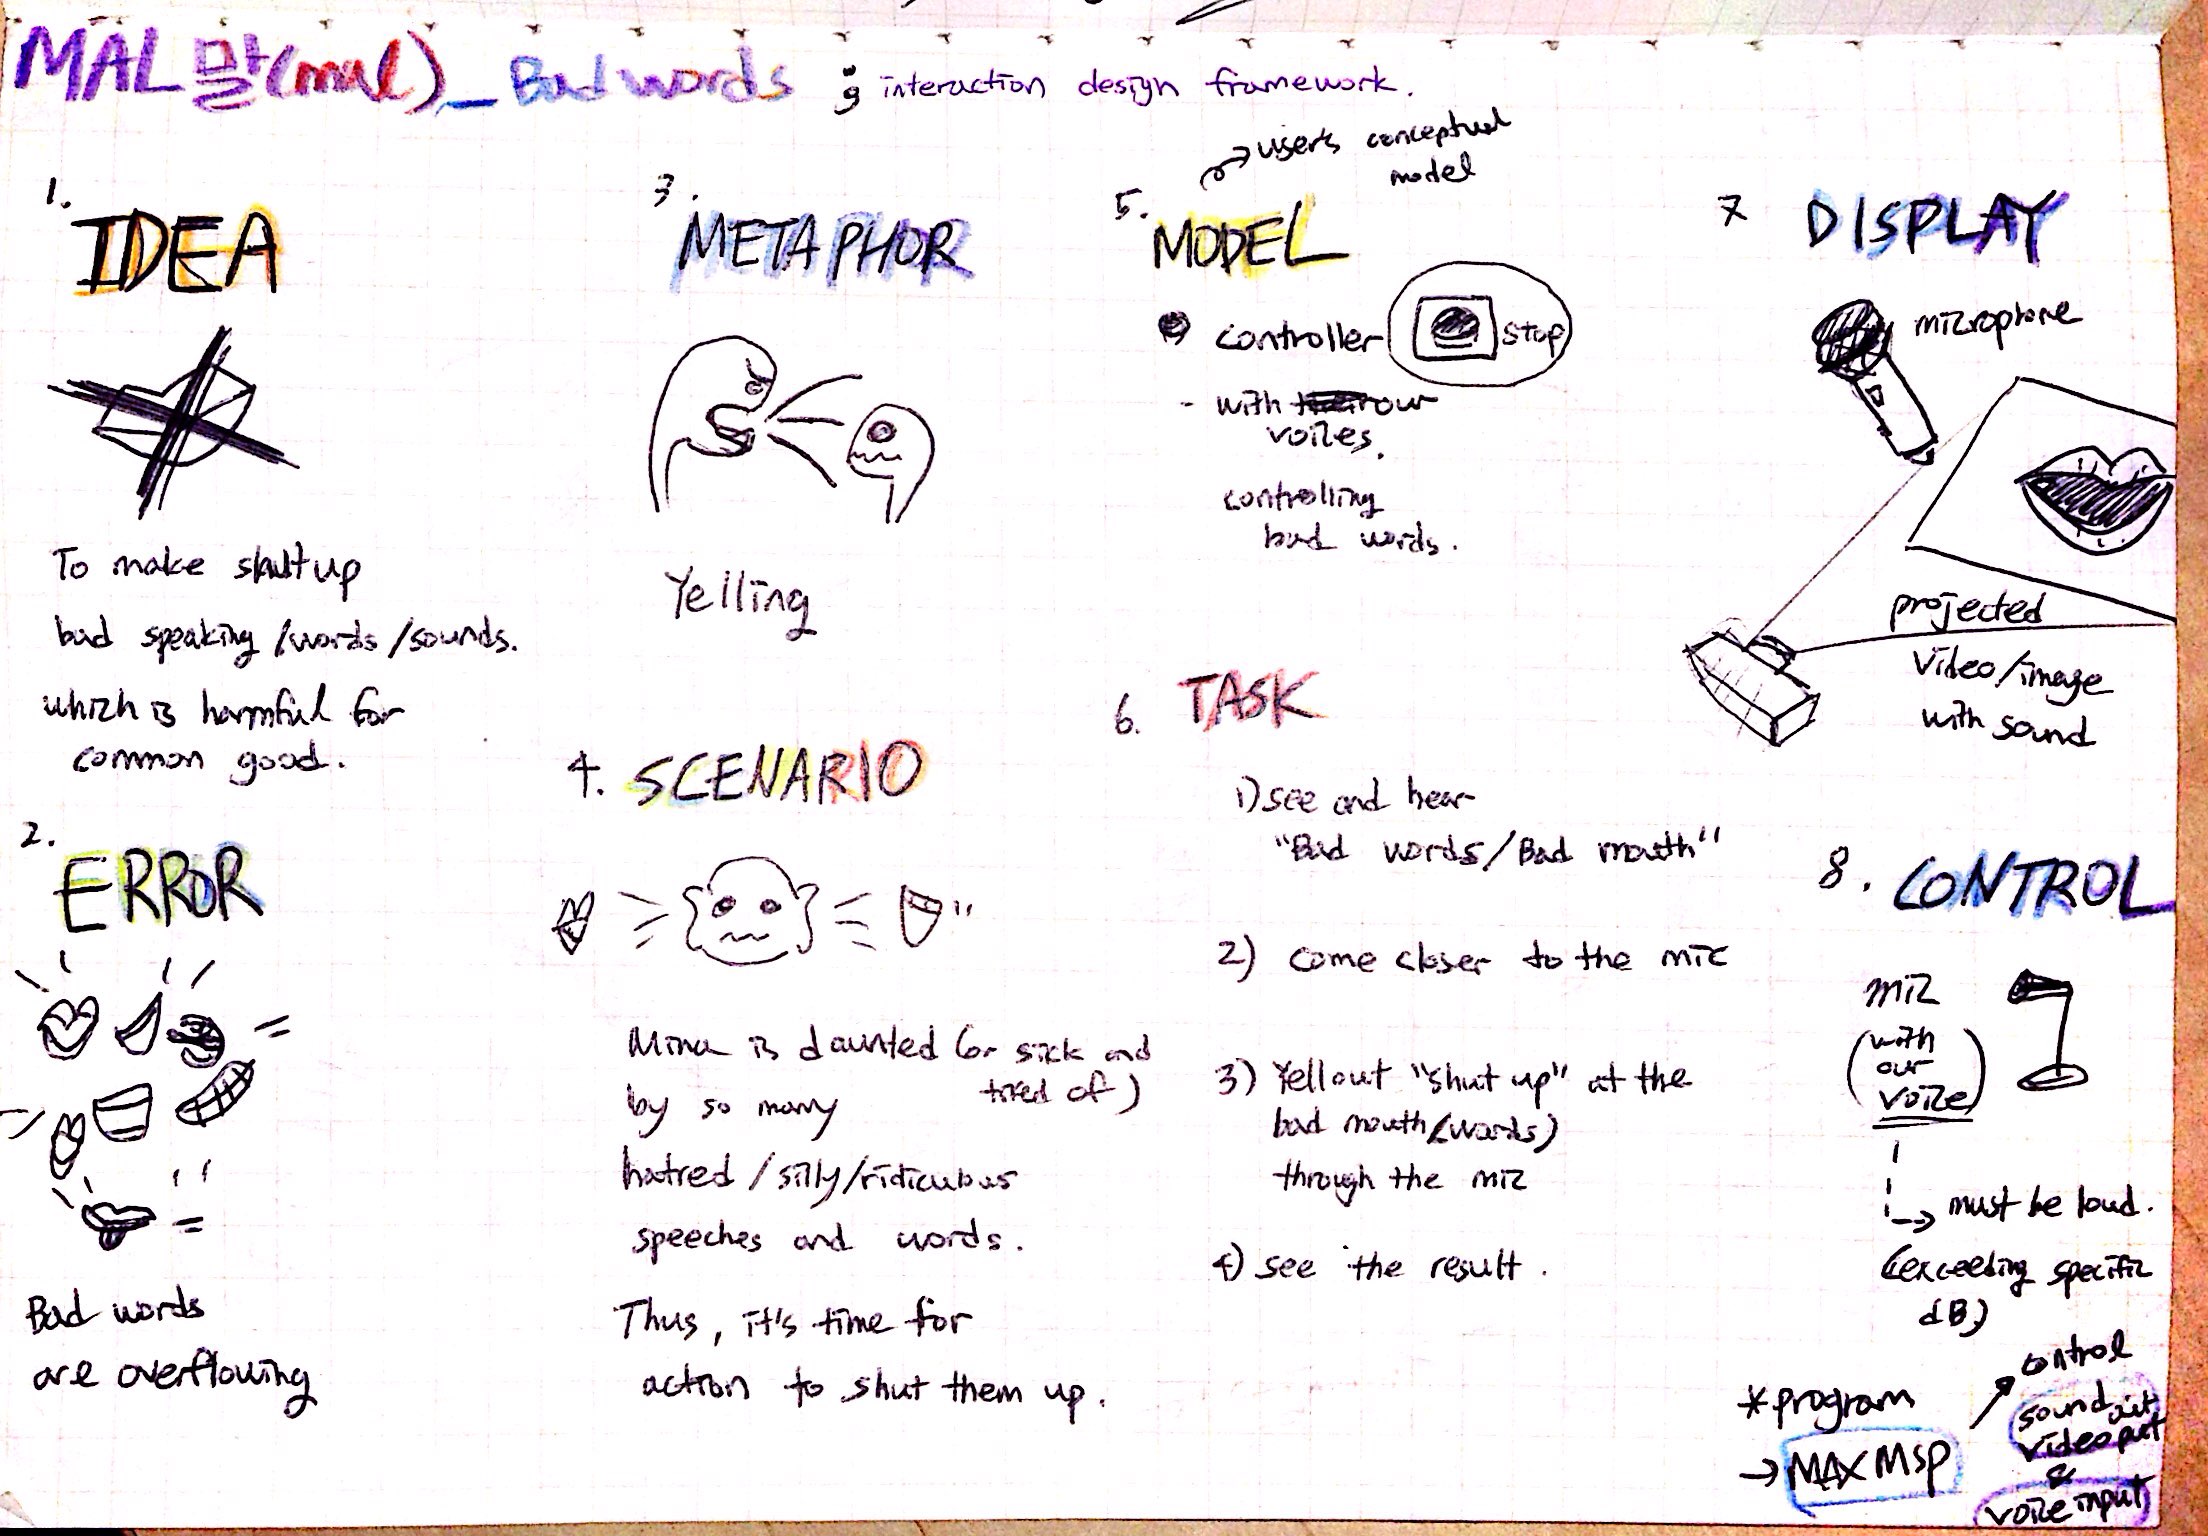 MAL 말(mal)_Bad words ; interaction design framework.
1.
IDEA
To make shut up
bad speaking/words/sounds.
which is harmful for
common good.
2.
ERROR
Bad words
are overflowing
3.
METAPHOR
Yelling
4. SCENARIO
Mina is daunted (or sick and
tired of)
by so many
hatred/silly/ridiculous
speeches and words.
Thus, it's time for
action to shut them up.
user's conceptual
model
5.
MODEL
controller
stop
- with our
voices.
controlling
bad words.
6. TASK
1) see and hear
"Bad words/Bad mouth"
2) come closer to the mic
3) Yell out "shut up" at the
bad mouth (words)
through the mic
4) see the result.
7 DISPLAY
microphone
projected
video/image
with sound
8. CONTROL
mic
(with
our
voice)
must be loud.
(exceeding specific
dB)
*program
→ MAX MSP
control
sound out
video put
&
voice input